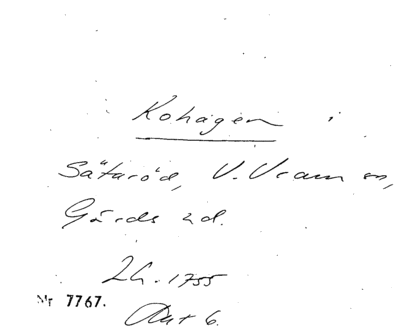 Kohagen i
Sätaröd, V. Vram sn,
Gärds hd.
LA. 1755
Nr 7767.
Akt 6.